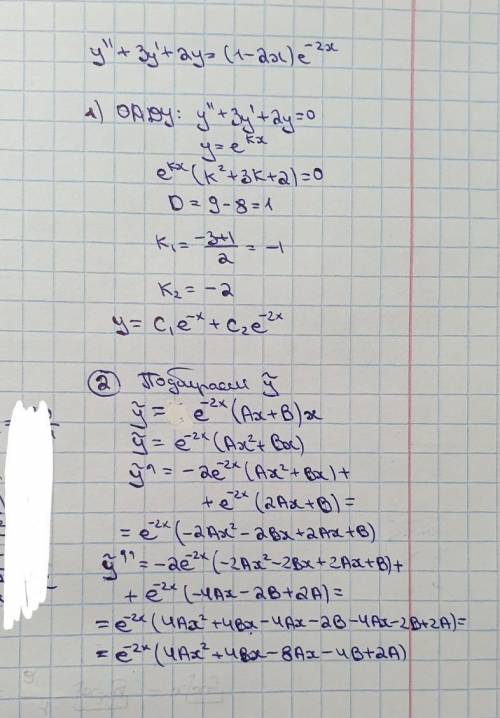 y'' + 3y' + 2y = (1-2x)e^{-2x}
1) ОЛДУ: y'' + 3y' + 2y = 0
y = e^{kx}
e^{kx}(k² + 3k + 2) = 0
D = 9 - 8 = 1
k₁ = \frac{-3+1}{2} = -1
k₂ = -2
y = C₁e^{-x} + C₂e^{-2x}
② Подбираем ỹ
ỹ = e^{-2x}(Ax+B)x
ỹ = e^{-2x}(Ax²+Bx)
ỹ' = -2e^{-2x}(Ax²+Bx) +
+ e^{-2x}(2Ax+B) =
= e^{-2x}(-2Ax²-2Bx+2Ax+B)
ỹ'' = -2e^{-2x}(-2Ax²-2Bx+2Ax+B) +
+ e^{-2x}(-4Ax-2B+2A) =
= e^{-2x}(4Ax²+4Bx-4Ax-2B-4Ax-2B+2A) =
= e^{-2x}(4Ax²+4Bx-8Ax-4B+2A)